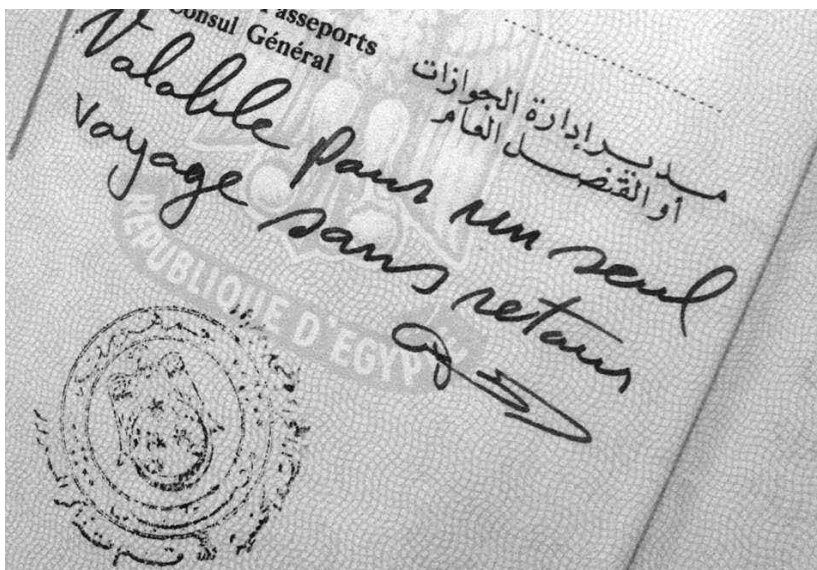 Passeports
Consul Général
مدير إدارة الجوازات
أو القنصل العام
Valable pour un seul
voyage sans retour
REPUBLIQUE D'EGYP